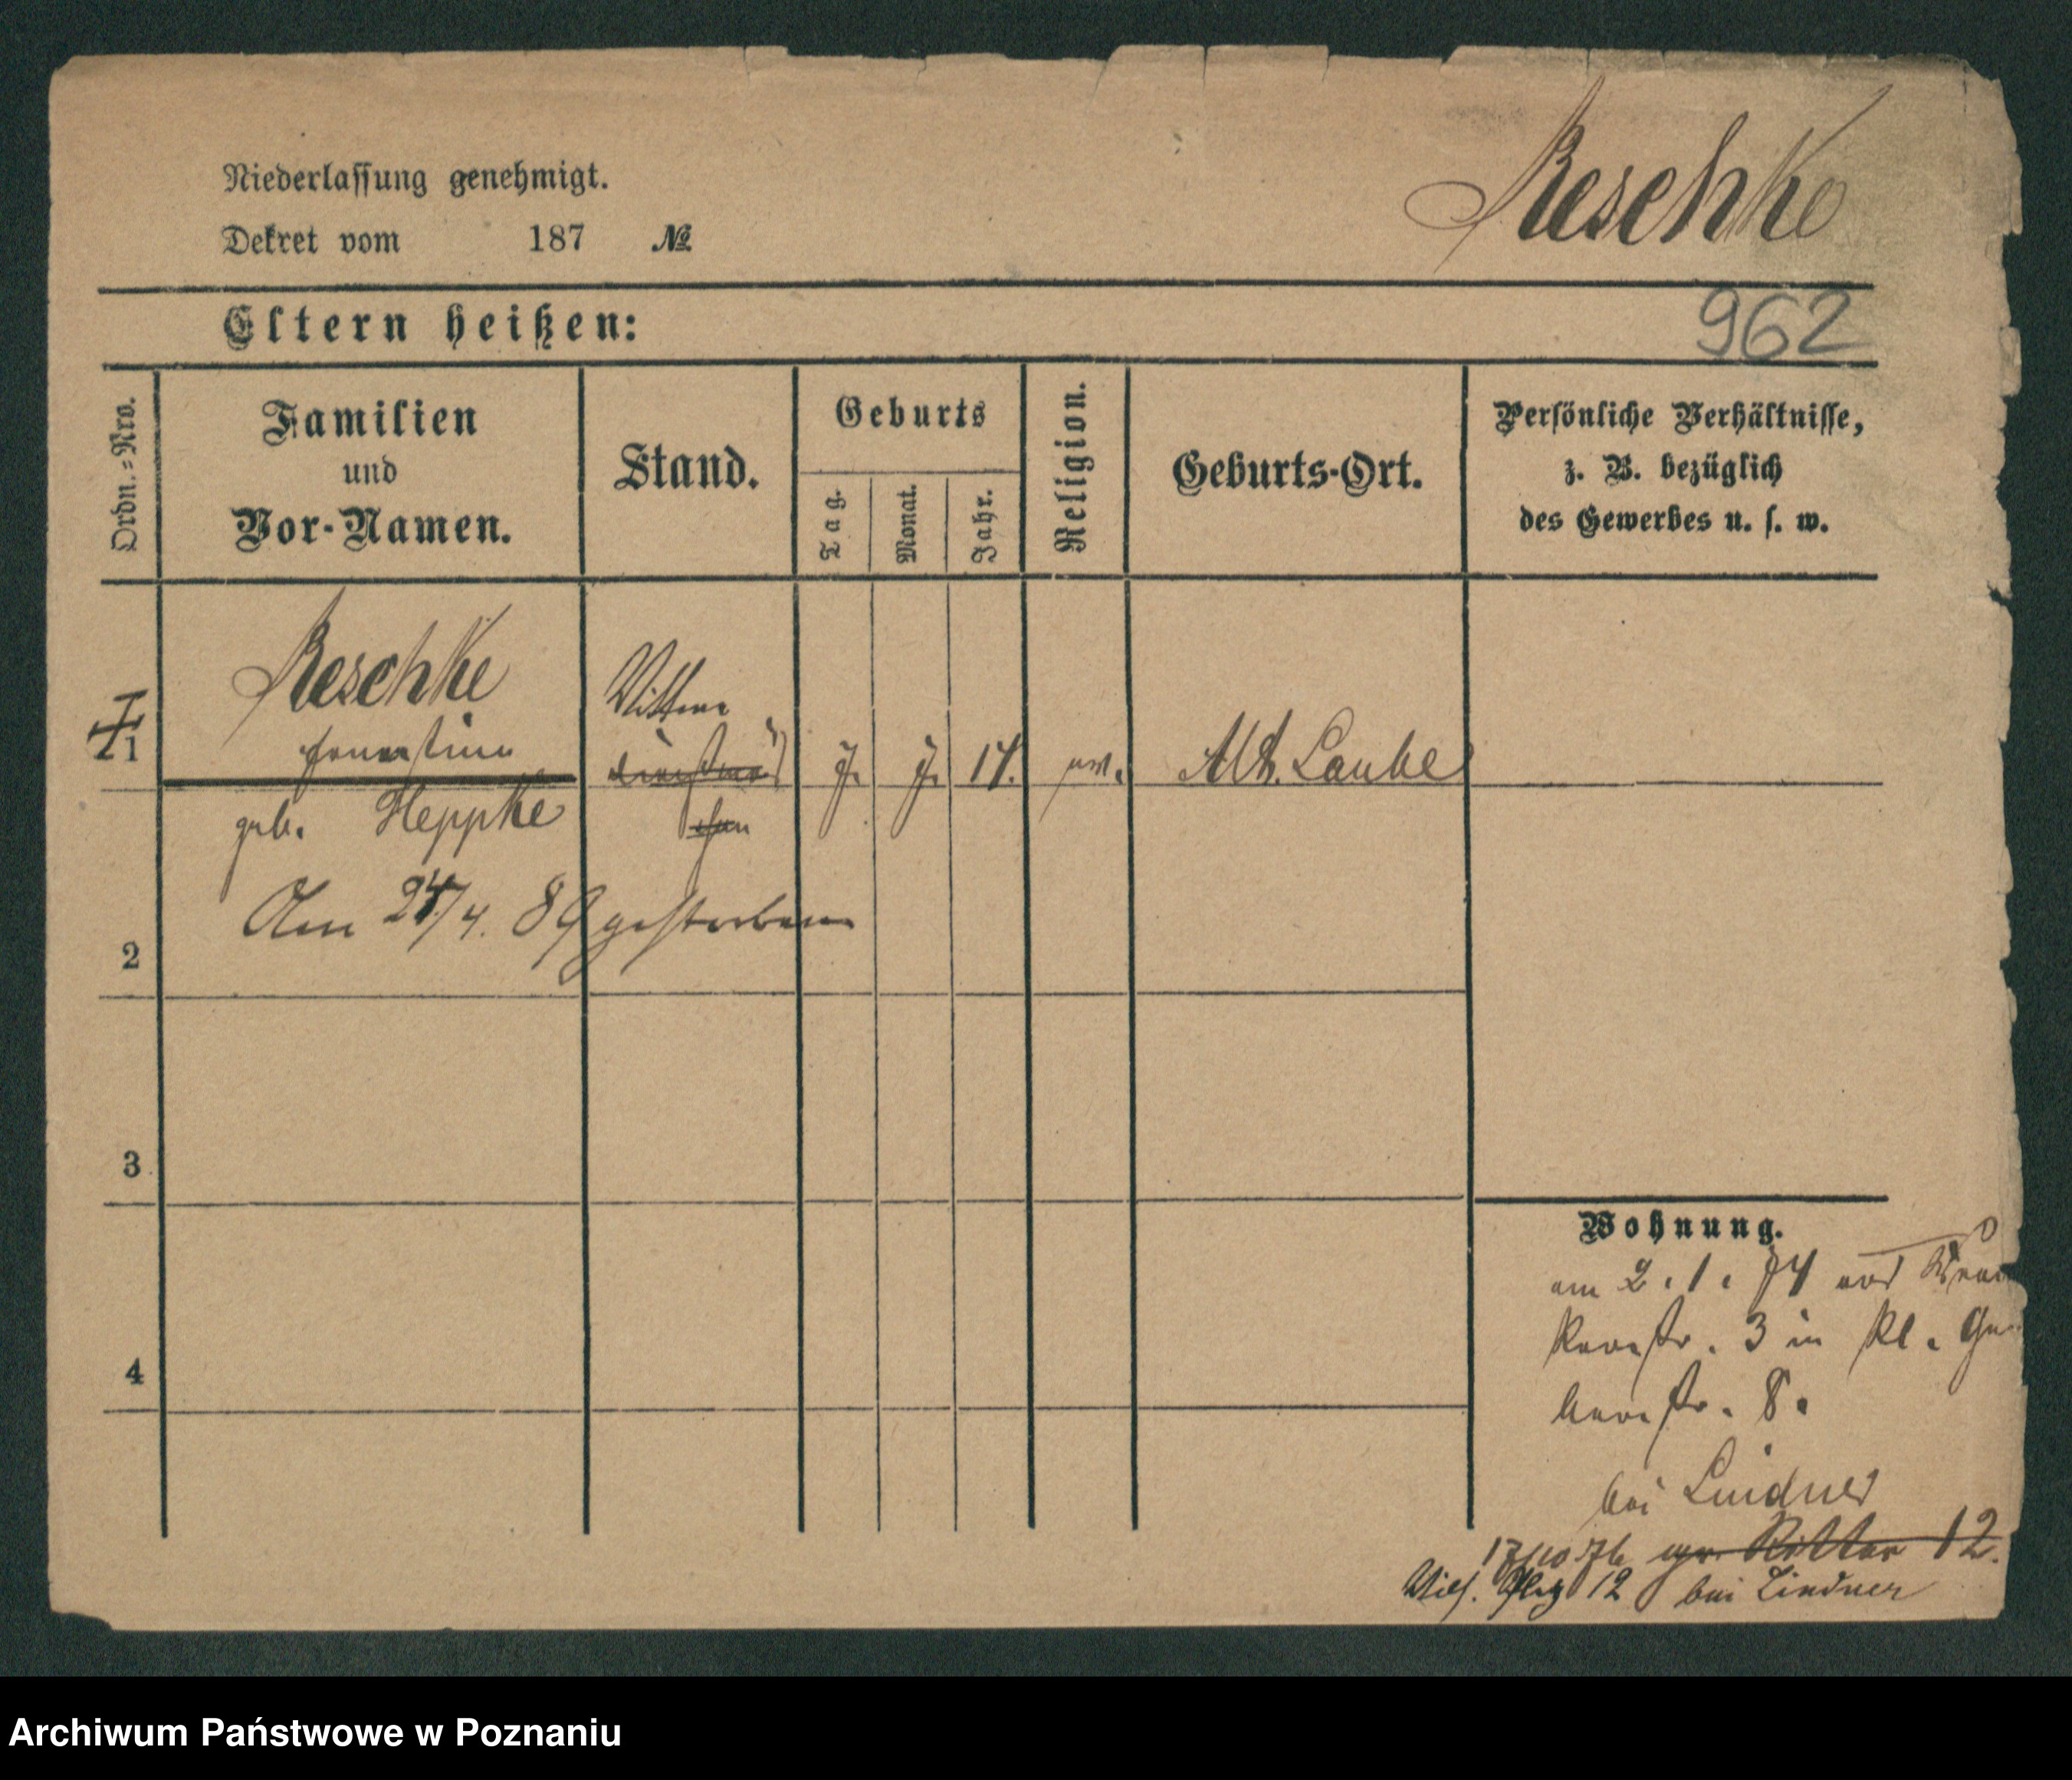 Reschke
Niederlassung genehmigt.
Dekret vom 187 №
962
Eltern heißen:
Ordn.-Nro.
Familien
und
Vor-Namen.
Stand.
Geburts
Tag.
Monat.
Jahr.
Religion.
Geburts-Ort.
Persönliche Verhältnisse,
z. B. bezüglich
des Gewerbes u. s. w.
Reschke
Wittwe
1 Ernestine 7. 7. 17. ev. Alt. Laube
geb. Heppke
Am 24/4. 89 gestorben
2
3
4
Wohnung.
am 2. 1. 74 von
3 in Kl. Ger
berstr. 8.
bei Lindner
17/10 76 gr. Ritter 12.
Wilh. Platz 12 bei Lindner
Archiwum Państwowe w Poznaniu